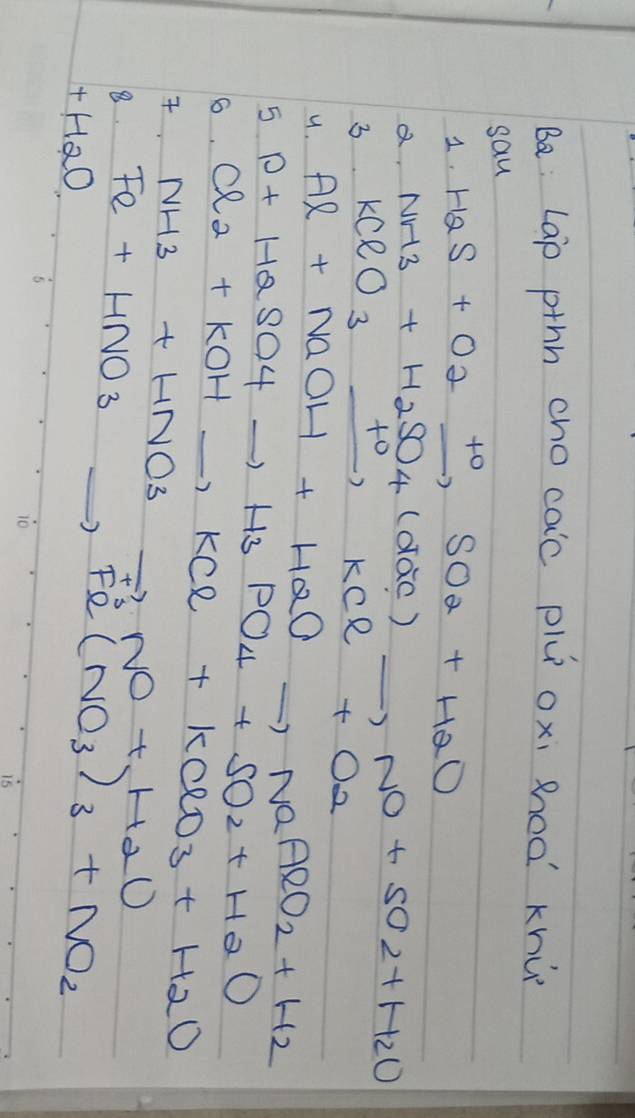 B2: Lập pthh cho các pứ oxi hoá khử
sau
1. H2S + O2 t° → SO2 + H2O
2. NH3 + H2SO4 (đặc) → NO + SO2 + H2O
3. KClO3 t° → KCl + O2
4. Al + NaOH + H2O → NaAlO2 + H2
5 P + H2SO4 → H3PO4 + SO2 + H2O
6. Cl2 + KOH → KCl + KClO3 + H2O
7. NH3 + HNO3 → NO + H2O
8. Fe + HNO3 → +3 Fe(NO3)3 + NO2
+ H2O
5 10 15